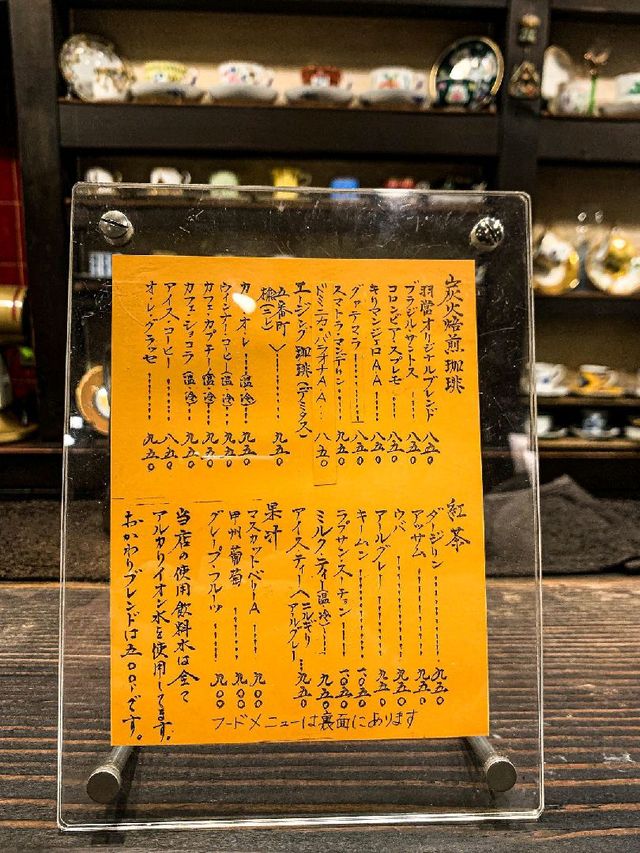 炭火焙煎珈琲
羽當オリジナルブレンド 八五〇
ブラジル・サントス 八五〇
コロンビア・スプレモ 八五〇
キリマンジェロAA 八五〇
グァテマラ 八五〇
スマトラ・マンデリン 九五〇
ドミニカ・バラオナAA 八五〇
エージング珈琲(デミタス)
五番町
九五〇
カフェ・オ・レ(温・冷) 九五〇
ウィンナー・コーヒー(温・冷) 九五〇
カフェ・カプチーノ(温・冷) 九五〇
カフェ・ショコラ(温・冷) 九五〇
アイス・コーヒー 八五〇
オ・レ・グラッセ 九五〇
紅茶
ダージリン 九五〇
アッサム 九五〇
ウバ 九五〇
アールグレー 九五〇
キームン 一〇五〇
ラプサン・スーチョン 一〇五〇
ミルク・ティー(温・冷) 九五〇
アイス・ティー(ニルギリ アールグレー) 九五〇
果汁
マスカットベリーA 九〇〇
甲州葡萄 九〇〇
グレープ・フルーツ 九〇〇
当店の使用飲料水は全て
アルカリイオン水を使用してます。
おかわりブレンドは五〇〇円です。
フードメニューは裏面にあります